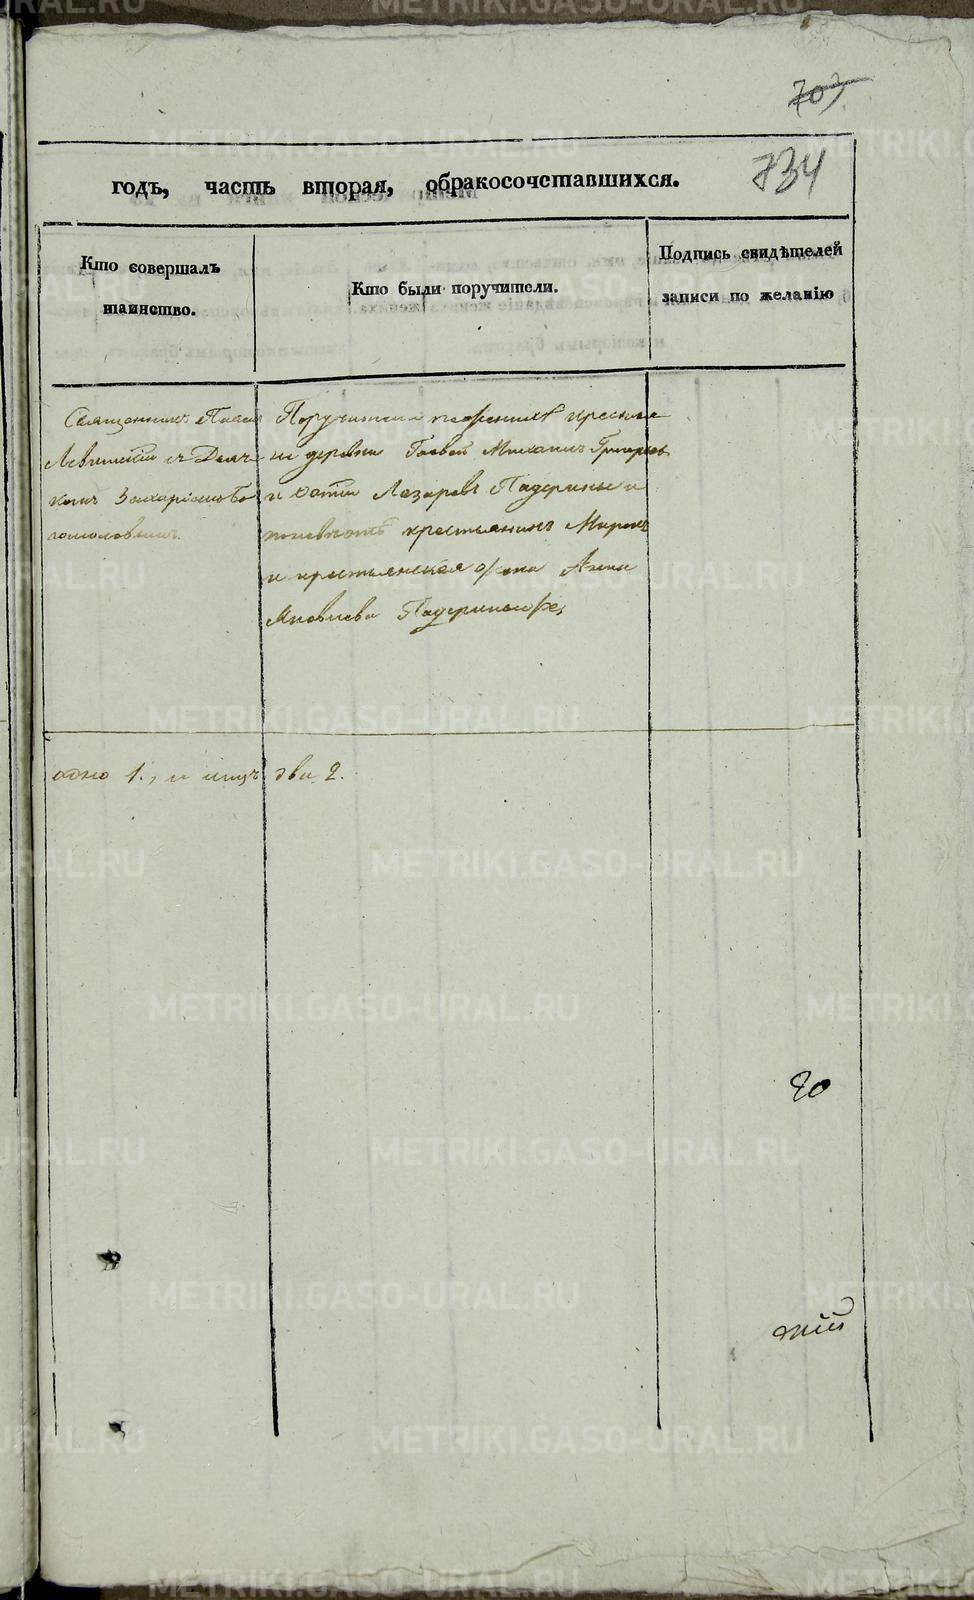 703
734
годъ, часть вторая, обракосочетавшихся.
Кто совершалъ
таинство.
Кто были поручители.
Подпись свидѣтелей
записи по желанію
Священникъ Павелъ
Левитскій съ Дьяч-
комъ Захаріемъ Бо-
гомоловымъ.
Поручители по женихѣ крестья-
не деревни Гаевой Михаилъ Григорьевъ
и Лазаревъ Падерины и
по невѣстѣ крестьянинъ Миронъ
и крестьянская жена Анна
Яковлева Падерины же.
одно 1., и лицъ два 2.
20
METRIKI.GASO-URAL.RU